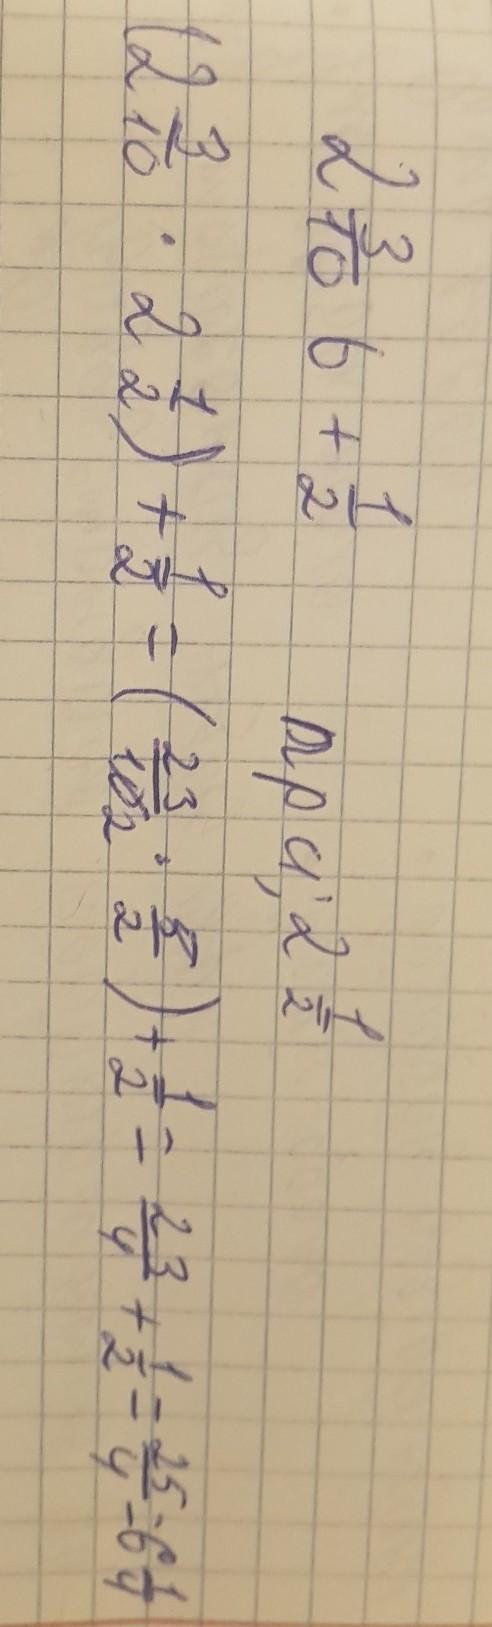 2 3/10 b + 1/2 при; 2 1/2
(2 3/10 · 2 1/2) + 1/2 = (23/10 2 · 5/2) + 1/2 = 23/4 + 1/2 = 25/4 = 6 1/4